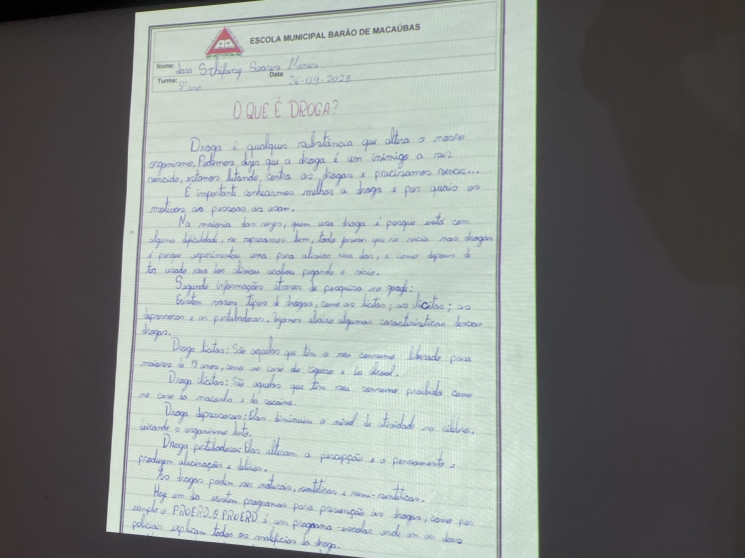 ESCOLA MUNICIPAL BARÃO DE MACAÚBAS
Nome: Soares
Turma: 8º ano Data 26-09-2023
O QUE É DROGA?
Droga é qualquer substância que altera o nosso
organismo. Podemos dizer que a droga é um inimigo a ser
vencido, estamos lutando, contra as drogas e precisamos vencer...
É importante conhecermos melhor a droga e por quais os
motivos as pessoas as usam.
Na maioria das vezes, quem usa droga é porque está com
alguma dificuldade, se repararmos bem, todo jovem que se vicia nas drogas
é porque experimentou uma para aliviar sua dor, e como depois de
ter usado sua dor aliviou acabou pegando o vício.
Segundo informações através de pesquisa no google:
Existem vários tipos de drogas, como as lícitas; as ilícitas; as
depressoras e as pertubadoras. Vejamos abaixo algumas características dessas
drogas.
Droga lícitas: São aquelas que têm o seu consumo liberado para
maiores de anos, como no caso do cigarro e do álcool.
Droga ilícitas: São aquelas que têm seu consumo proibido como
no caso da maconha e da cocaína.
Droga depressoras: Elas diminuem o nível de atividade no cérebro,
deixando o organismo lento.
Droga pertubadoras: Elas alteram a percepção e o pensamento e
produzem alucinações e delírios.
As drogas podem ser naturais, sintéticas e semi-sintéticas.
Hoje em dia existem programas para prevenção as drogas, como por
exemplo o PROERD. O PROERD é um programa escolar onde um ou dois
policiais explicam todos os malefícios da droga.